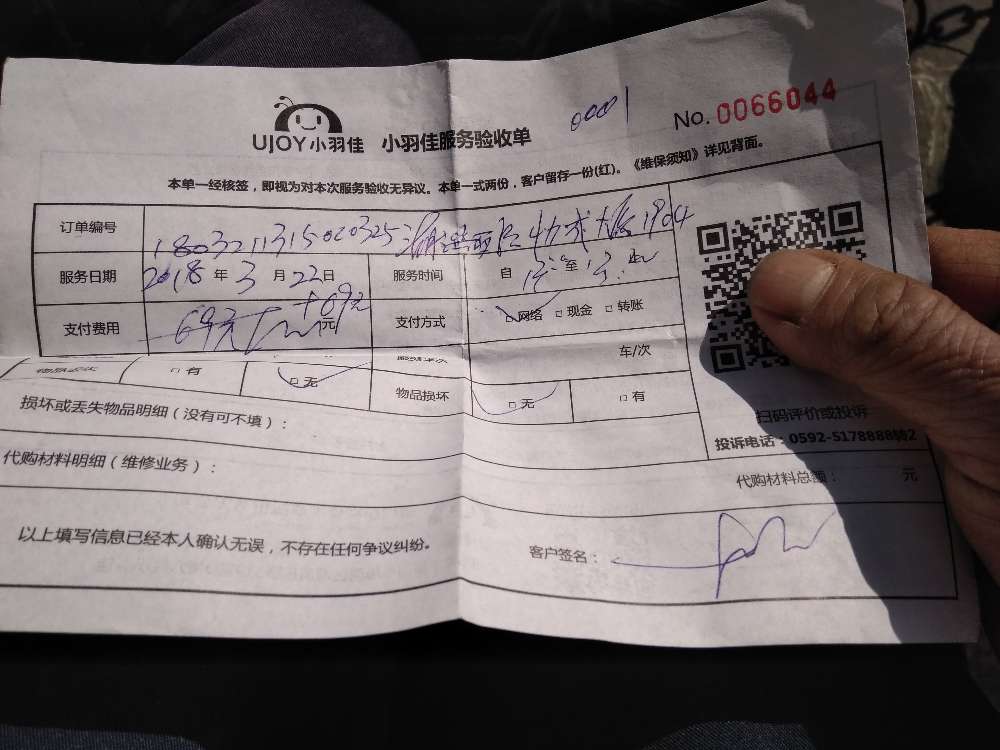 0001
No. 0066044
UJOY小羽佳 小羽佳服务验收单
本单一经核签，即视为对本次服务验收无异议。本单一式两份，客户留存一份(红)。《维保须知》详见背面。
订单编号 1803211315020325 大厦1904
服务日期 2018 年 3 月 22 日 服务时间 自 至
支付费用 69元 元 支付方式 □ 网络 □ 现金 □ 转账
车/次
□ 有 □ 无 物品损坏 □ 无 □ 有
扫码评价或投诉
投诉电话：0592-5178888转2
损坏或丢失物品明细（没有可不填）：
代购材料明细（维修业务）： 代购材料总额： 元
以上填写信息已经本人确认无误，不存在任何争议纠纷。 客户签名：